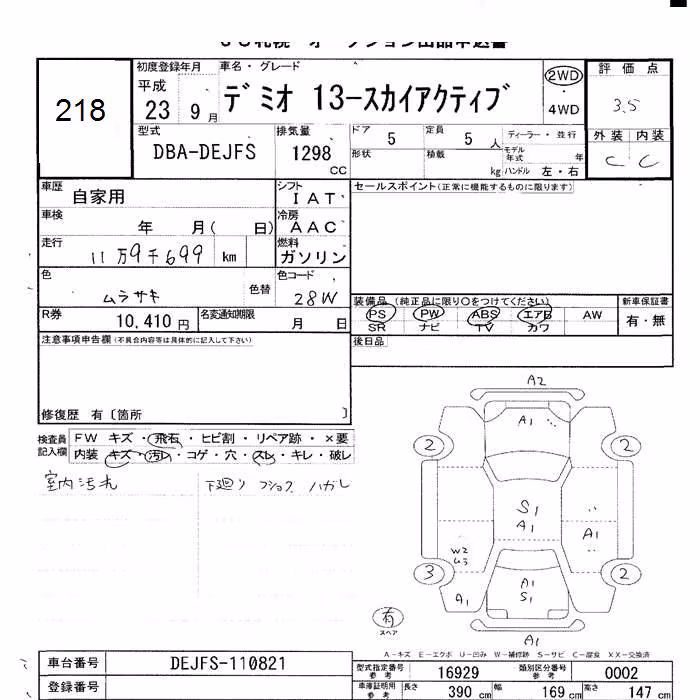 218
初度登録年月
平成
23 9月
車名・グレード
デミオ 13-スカイアクティブ
2WD
・
4WD
評価点
3.5
外装 内装
C C
型式
DBA-DEJFS
排気量
1298
CC
ドア
5
定員
5人
形状
積載
kg
ディーラー・並行
モデル年式 年
ハンドル 左・右
車歴
自家用
シフト
IAT
車検
年 月( 日)
冷房
AAC
走行
11万9千699 km
燃料
ガソリン
色
ムラサキ
色替
色コード
28W
R券
10,410円
名変通知期限
月 日
セールスポイント(正常に機能するものに限ります)
装備品 (純正品に限り○をつけてください)
PS PW ABS エアB AW
SR ナビ TV カワ
新車保証書
有・無
後日品
注意事項申告欄(不具合内容等は具体的に記入して下さい)
修復歴 有〔箇所 〕
検査員
記入欄
FW キズ・飛石・ヒビ割・リペア跡・×要
内装 キズ・汚レ・コゲ・穴・スレ・キレ・破レ
室内汚れ
下廻り
ハガレ
A2
A1
2
2
S1
A1
A1
W2
3
2
A1
A1
S1
A1
有
スペア
A-キズ E-エクボ U-凹み W-補修跡 S-サビ C-腐食 XX-交換済
車台番号
DEJFS-110821
登録番号
型式指定番号
参考
16929
類別区分番号
参考
0002
車庫証明用
参考
長さ
390 cm
幅
169 cm
高さ
147 cm